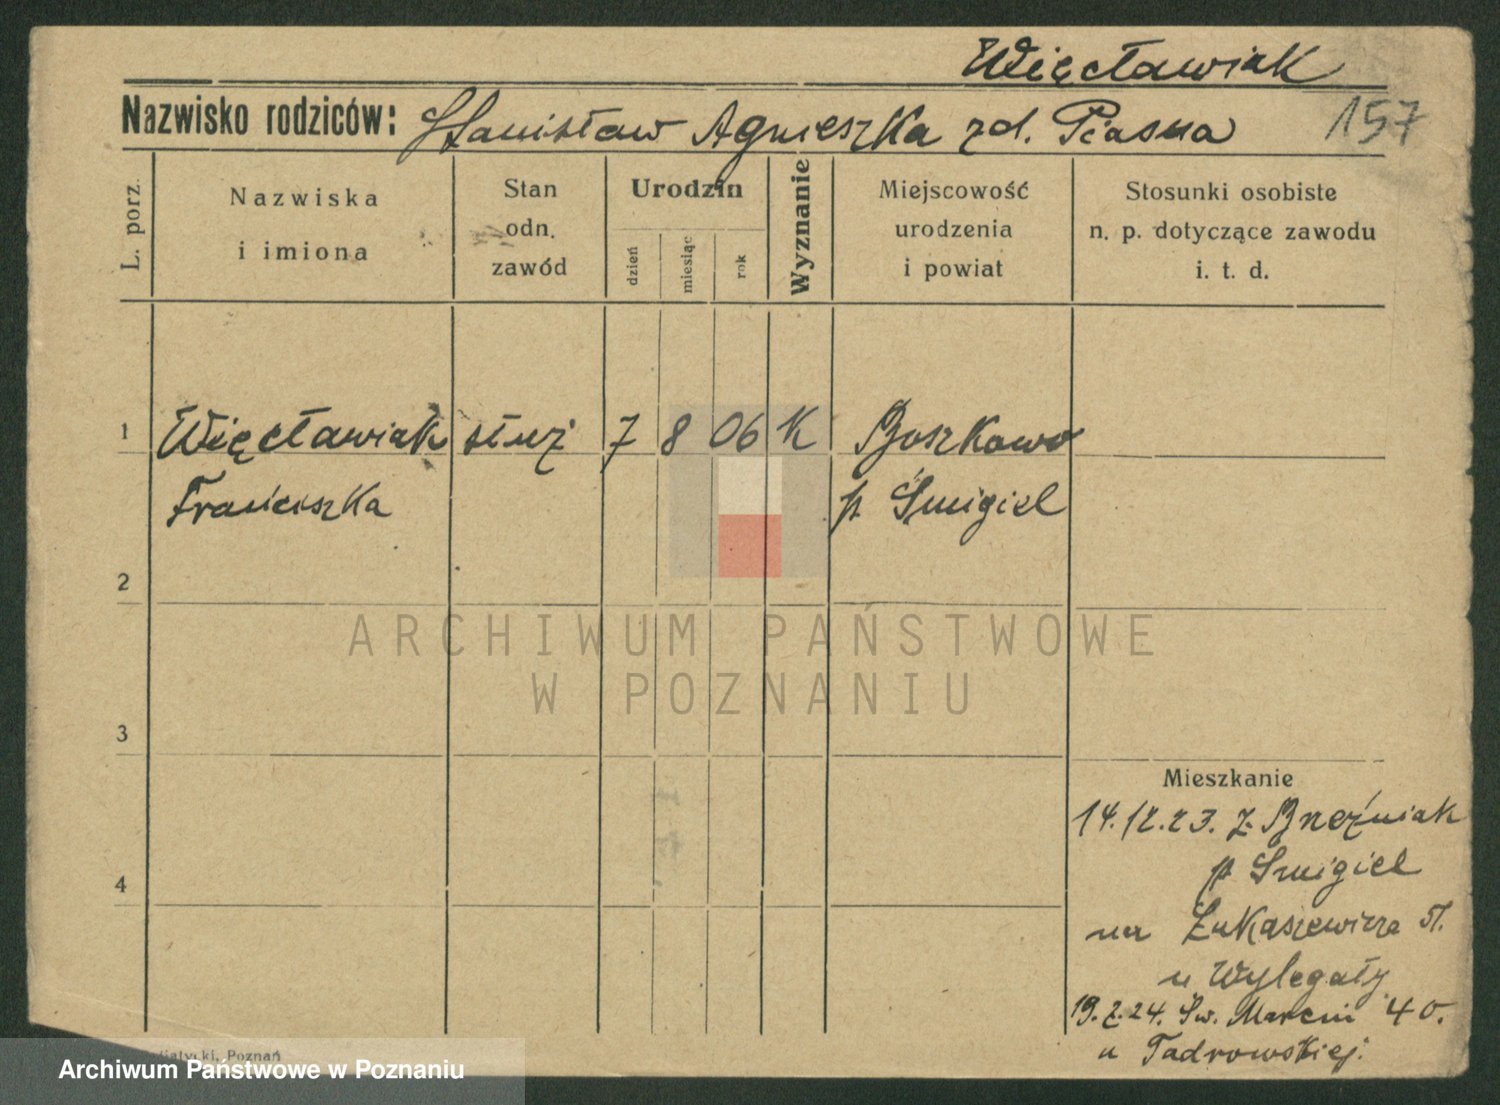 Więcławiak
Nazwisko rodziców: Stanisław Agnieszka zd. Piasna
157
L. porz.
Nazwiska
i imiona
Stan
odn.
zawód
Urodzin
dzień
miesiąc
rok
Wyznanie
Miejscowość
urodzenia
i powiat
Stosunki osobiste
n. p. dotyczące zawodu
i. t. d.
1 Więcławiak służ 7 8 06 K Boszkowo
Franciszka p. Śmigiel
2
ARCHIWUM PAŃSTWOWE
W POZNANIU
3
Mieszkanie
14.12.23. z
p Śmigiel
4
na Łukaszewicza 51.
u Wylegały
19. 2. 24. Św. Marcin 40.
u Tadrowskiej.
Poznań
Archiwum Państwowe w Poznaniu